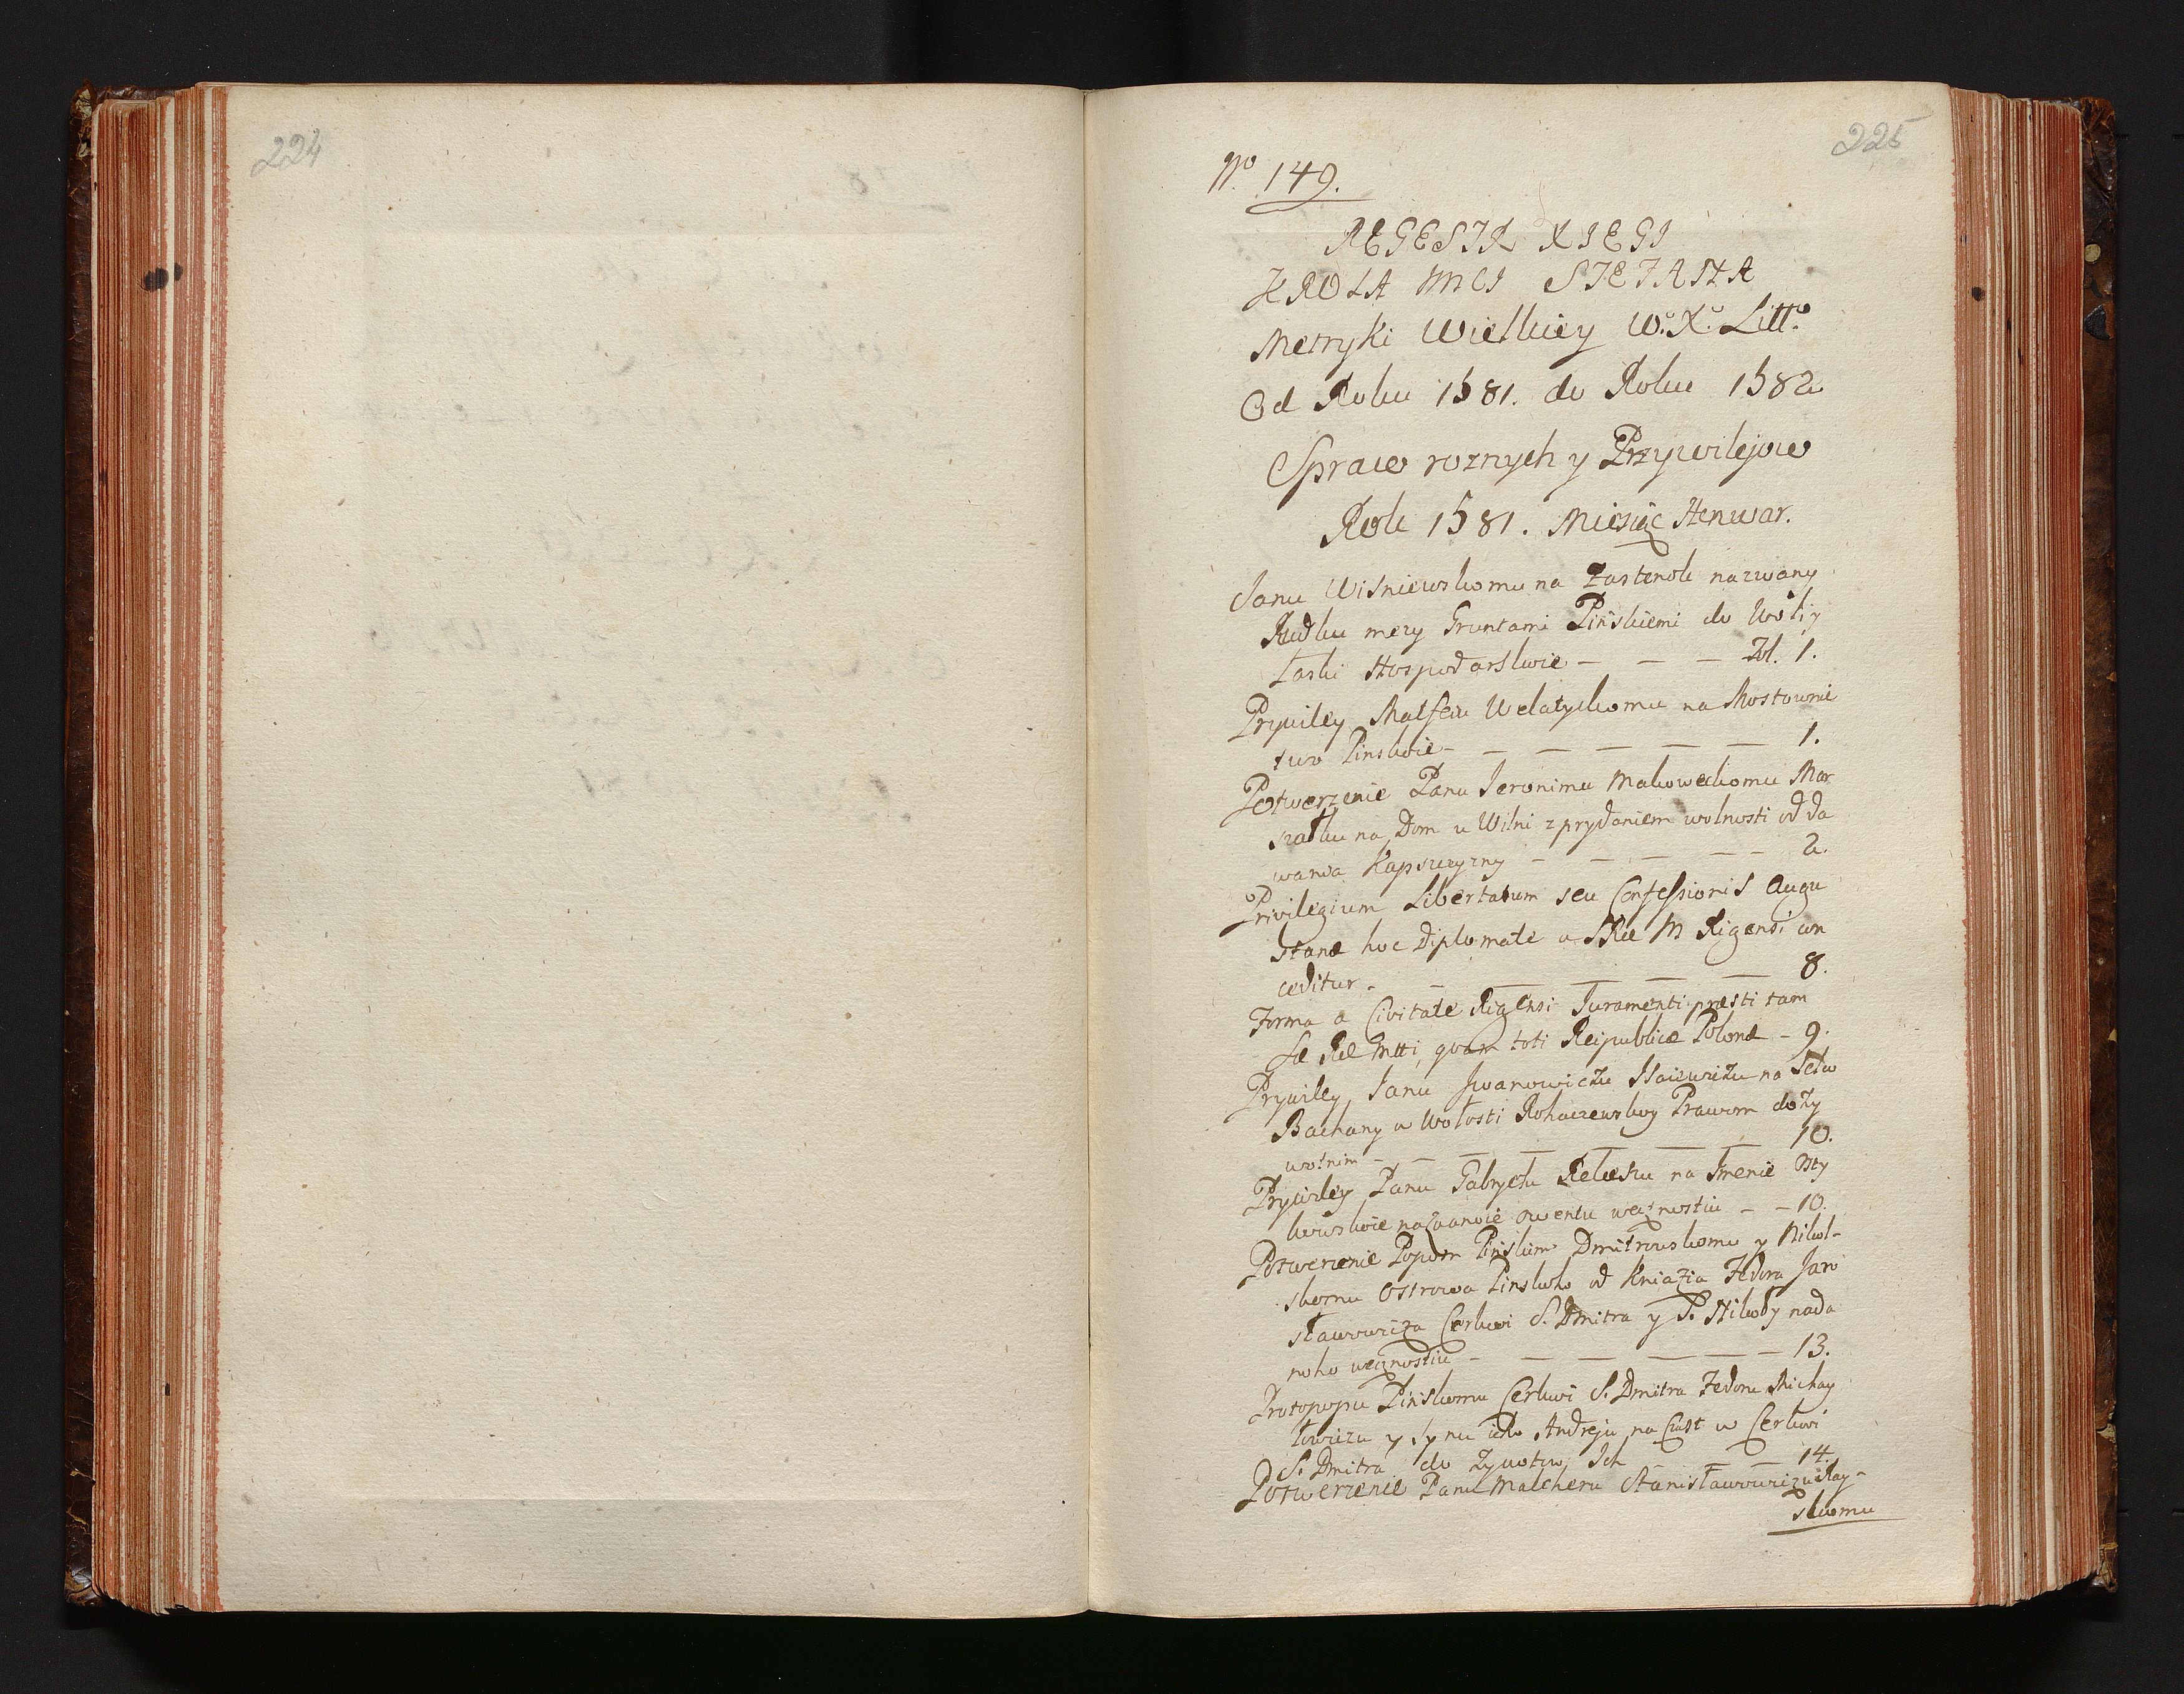 224
225
No 149.
REGESTR XIEGI
KROLA JMCI STEFANA
Metryki Wielkiey W.o X.o Litt.o
Od Roku 1581. do Roku 1582
Spraw roznych y Przywilejow
Rok 1581. Miesiąc Henwar.
Janu Wiśniewskomu na Zastenok nazwany
Rudku mezy Gruntami Pińskiemi do Woli y
Łaski Hospodarskoie - - - Fol. 1.
Prywiley Matfeiu Welatyckomu na Mostownic
two Pinskoie - - - - - - 1.
Potwerzenie Panu Jeronimu Makoweckomu Mar
szałku na Dom u Wilni z prydaniem wolnosti od da
wania Kapszczyzny - - - - - 2.
Privilegium Libertatum seu Confessionis Augu
stanæ hoc Diplomate a SRæ M Rigensi con
ceditur - - - - - - 8.
Forma a Civitate Rigensi Juramenti præsti tam
Sæ Ræ Mtti, quam toti Reipublicæ Polonæ - 9.
Prywiley Janu Iwanowiczu Isaiewiczu na Seło
Bachany w Wołosti Rohaczewskoy Prawom doży
wotnim - - - - - - 10.
Prywiley Panu Gabryełu na Imenie
nazwanoie wecznostiu - - 10.
Potwerzenie Popom Pińskim Dmitrowskomu y Nikol-
skomu Ostrowa Pinskoho od Kniazia Fedora Jaro
sławowicza Cerkwi S. Dmitra y S. Nikoły nada
noho wecznostiu - - - - - - 13.
Protopopu Pińskomu Cerkwi S. Dmitra Fedoru Michay
łowiczu y Synu ieho Andreju na Czast w Cerkwi
S. Dmitra do Zywotow Ich - - 14.
Potwerzenie Panu Malcheru Stanisławowiczu Ray-
skomu